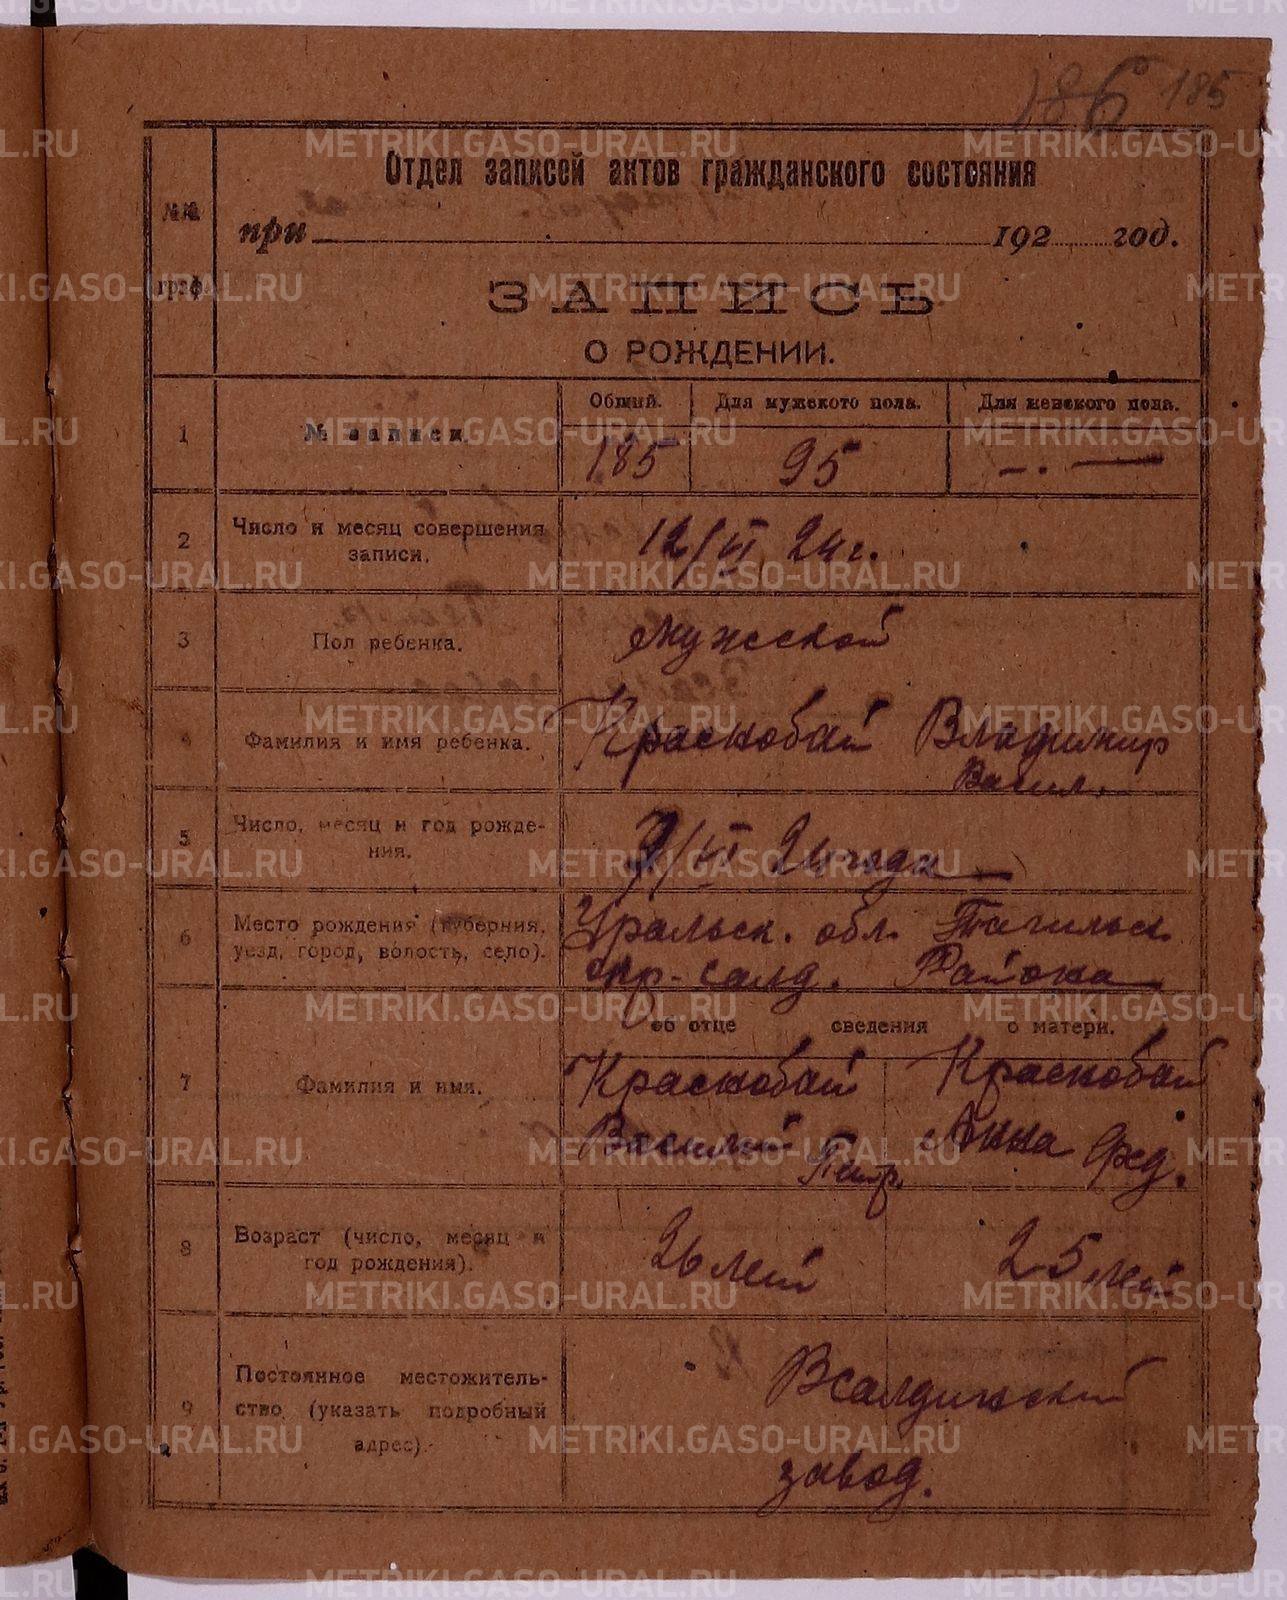 186 185
Отдел записей актов гражданского состояния
№№ граф.
при 192 год.
ЗАПИСЬ
О РОЖДЕНИИ.
1
№ записи.
Общий.
Для мужского пола.
Для женского пола.
185
95
2
Число и месяц совершения
записи.
12/VI 24 г.
3
Пол ребенка.
мужской
4
Фамилия и имя ребенка.
Краснобай Владимир
Васил.
5
Число, месяц и год рожде-
ния.
9/VI 24 года
6
Место рождения (губерния,
уезд, город, волость, село).
Уральск. обл. Тагильск.
окр-Салд. Района
об отце сведения о матери.
7
Фамилия и имя.
Краснобай
Василий Петр.
Краснобай
Анна Фед.
8
Возраст (число, месяц и
год рождения).
26 лет
25 лет
9
Постоянное местожитель-
ство (указать подробный
адрес).
Всалдинский
завод.
METRIKI.GASO-URAL.RU